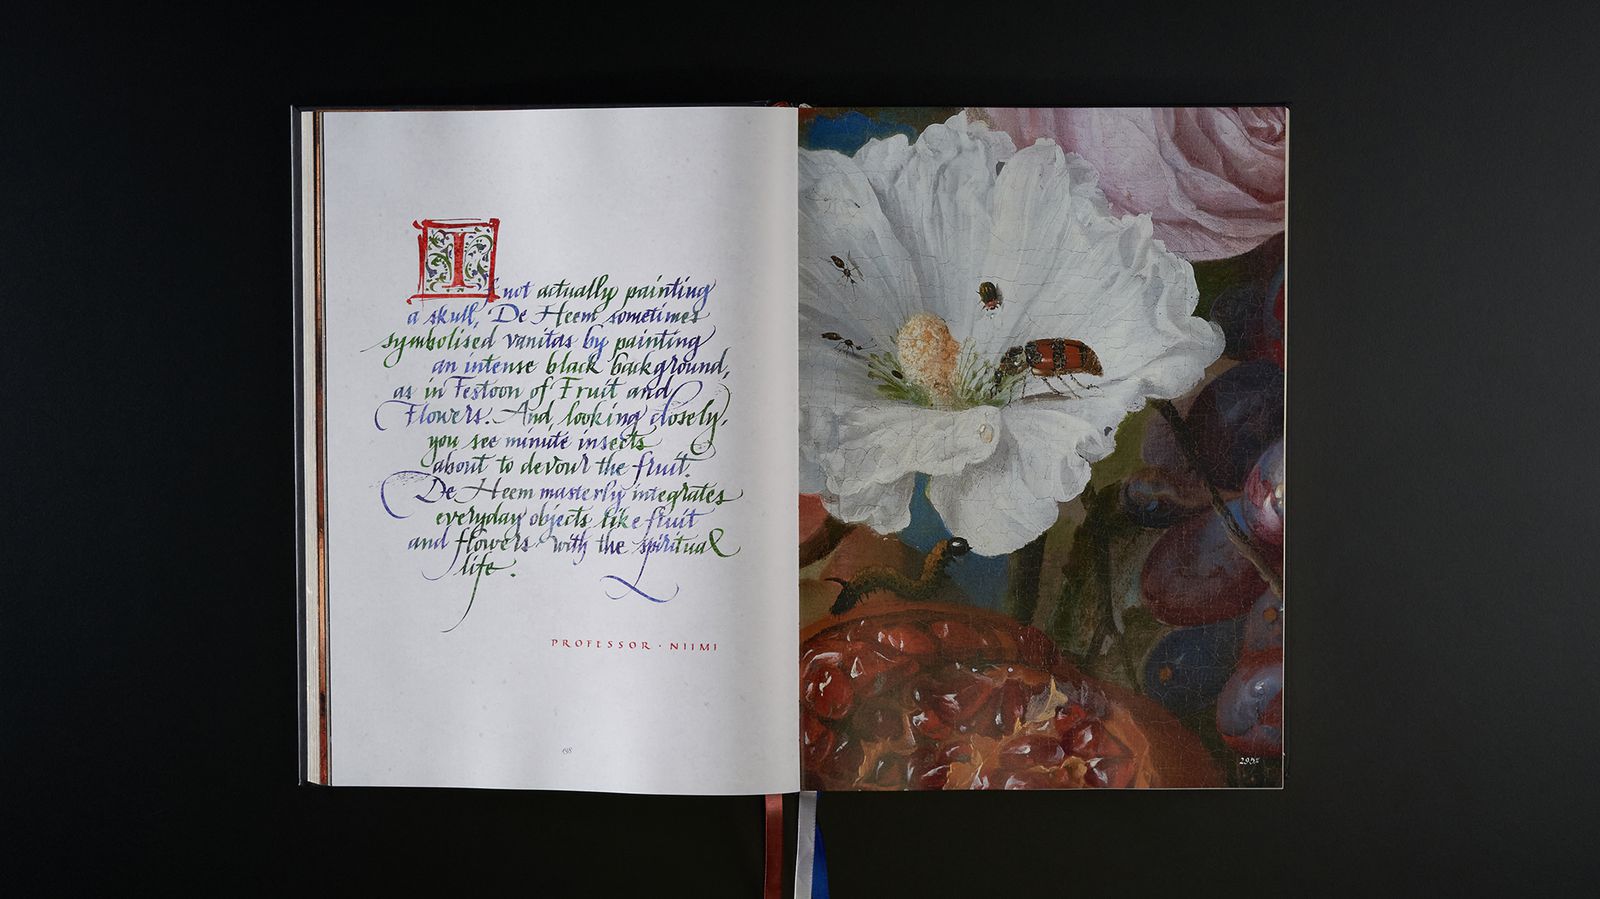 If not actually painting
a skull, De Heem sometimes
symbolised vanitas by painting
an intense black background,
as in Festoon of Fruit and
Flowers. And, looking closely,
you see minute insects
about to devour the fruit.
De Heem masterly integrates
everyday objects like fruit
and flowers with the spiritual
life.
PROFESSOR · NIIMI